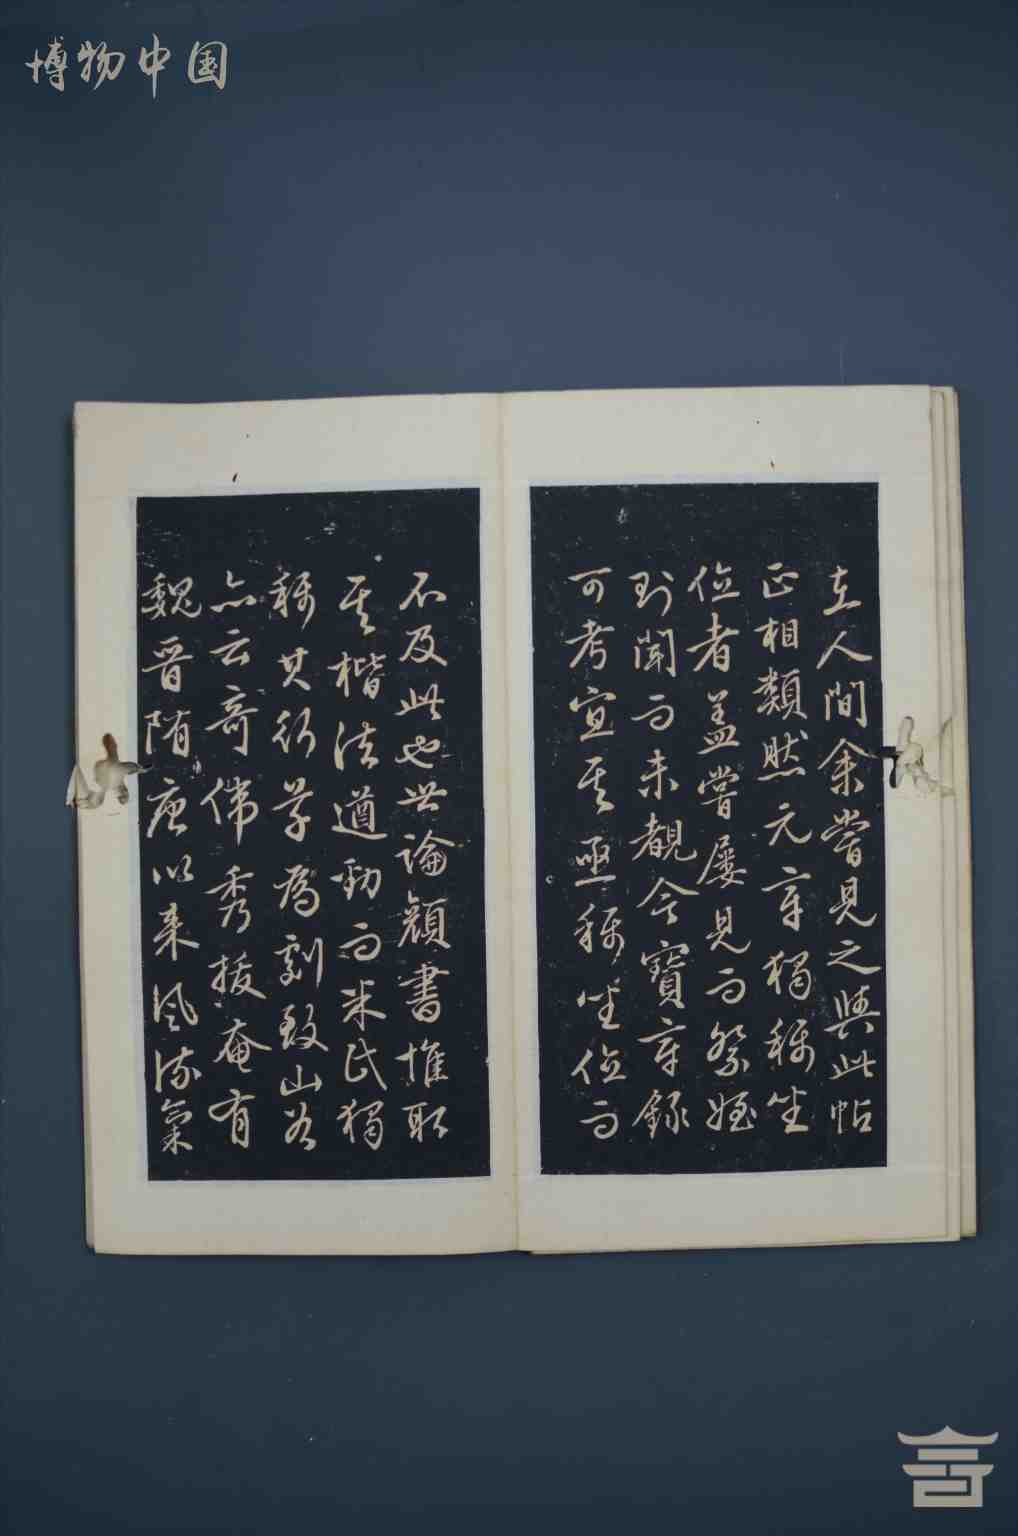 博物中国
在人間余嘗見之與此帖
正相類然元章獨稱坐
位者蓋嘗屢見而祭姪
則聞而未覩今寶章錄
可考宜其亟稱坐位而
不及此也世論顏書惟取
其楷法遒勁而米氏獨
稱其行草為劇致山谷
亦云奇偉秀拔奄有
魏晉隋唐以來風流氣